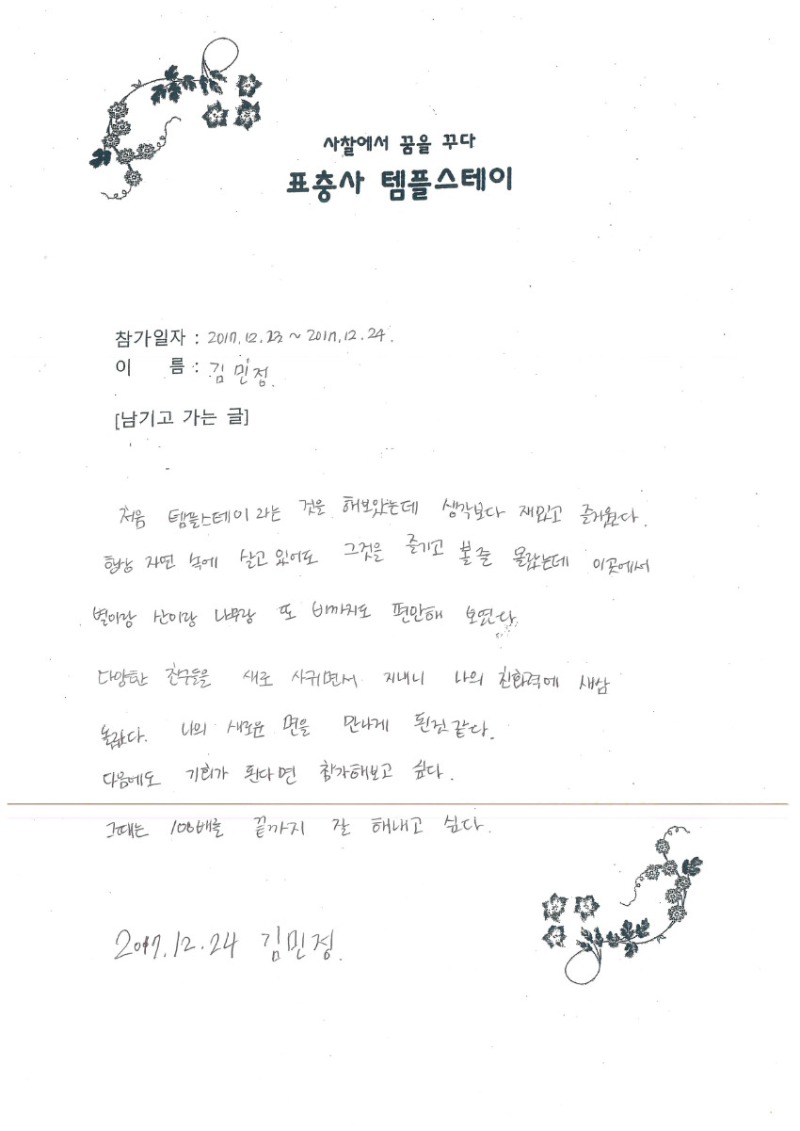 사찰에서 꿈을 꾸다
표충사 템플스테이
참가일자 : 2017.12.23 ~ 2017.12.24.
이 름 : 김민정.
[남기고 가는 글]
처음 템플스테이 라는 것을 해보았는데 생각보다 재밌고 즐거웠다.
항상 자연 속에 살고 있어도 그것을 즐기고 볼 줄 몰랐는데 이곳에서
별이랑 산이랑 나무랑 또 비까지도 편안해 보였다.
다양한 친구들을 새로 사귀면서 지내니 나의 친화력에 새삼
놀랐다. 나의 새로운 면을 만나게 된것 같다.
다음에도 기회가 된다면 참가해보고 싶다.
그때는 108배를 끝까지 잘 해내고 싶다.
2017.12.24 김민정.